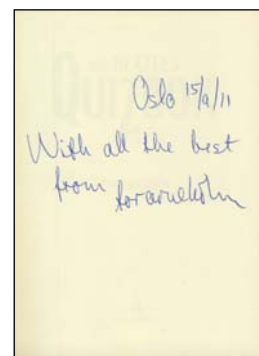 Oslo 15/9/11
With all the best
from